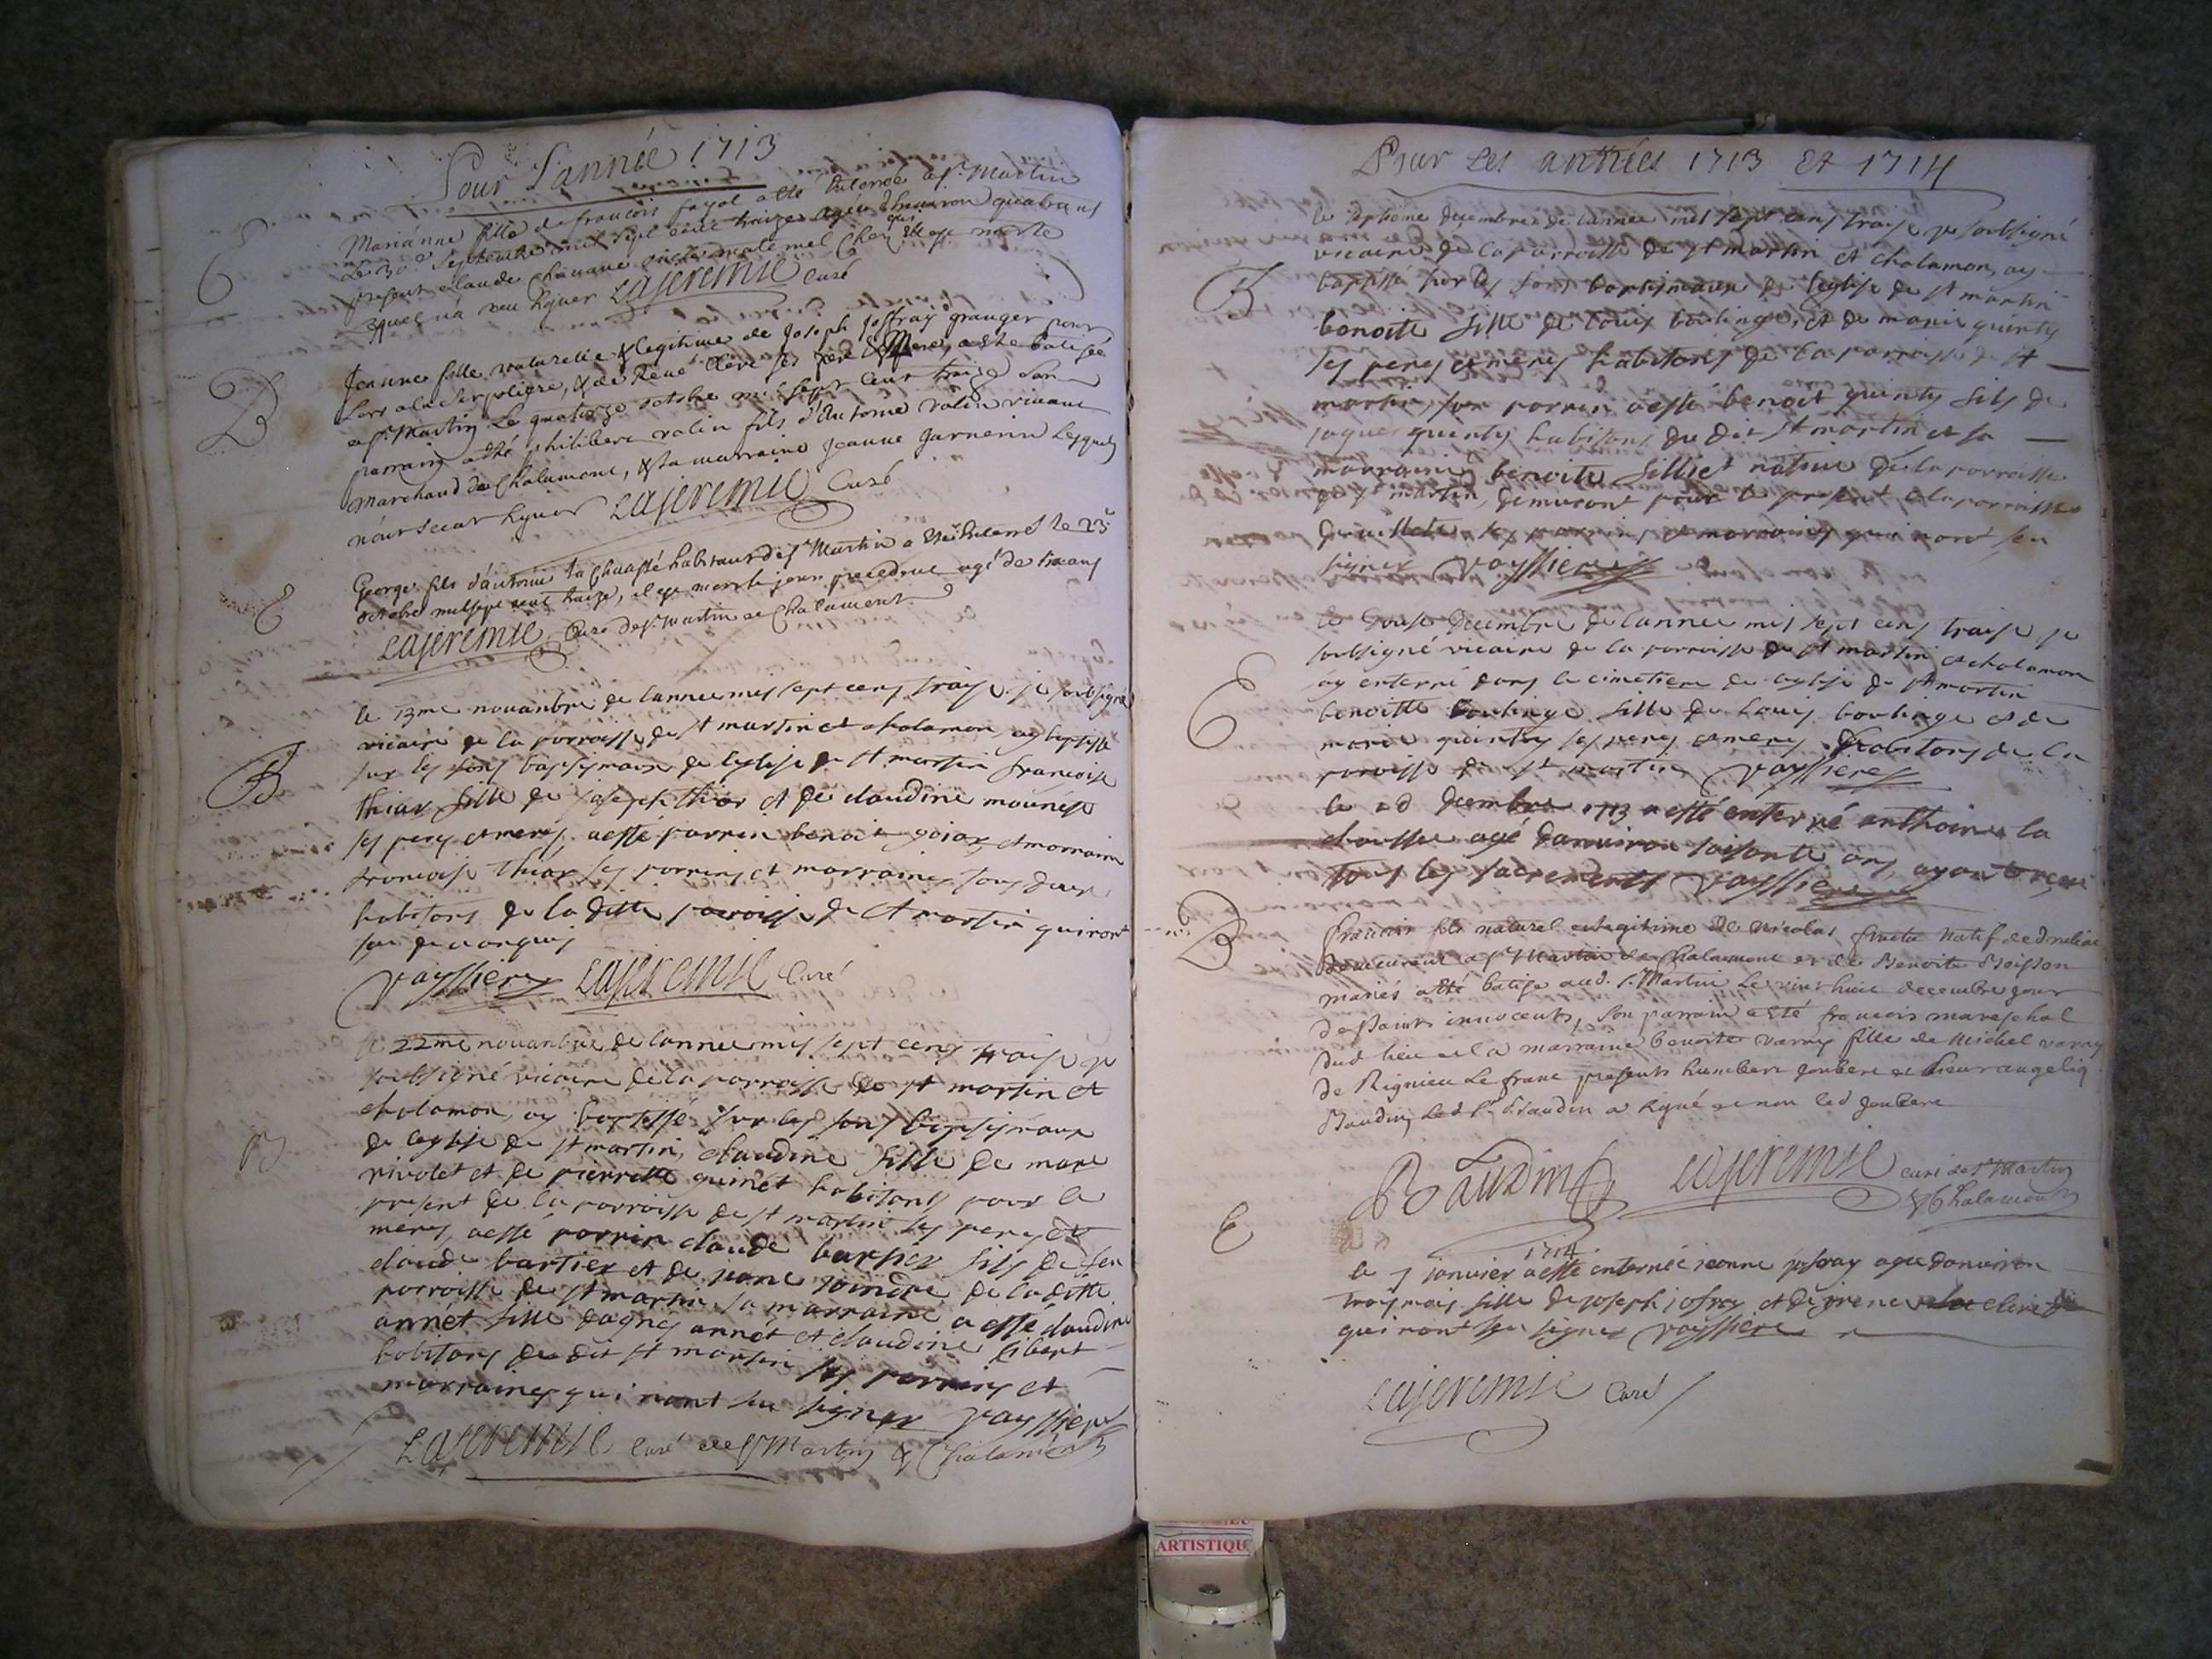 Pour L'année 1713
E
Marianne fille de francois fayol a esté enterrée a St Martin
Le 30e Septembre mil sept cent traize agée d'environ quatre ans
present claude chanane oncle maternel chez qui elle est morte
lequel n'a sceu signer Lajeremie curé
B
Jeanne fille naturelle & legitime de Joseph Joffray granger pour
lors a la Serpoliere, & de René clere ses pere & Mere, a esté batisée
a St Martin Le quatorze octobre mil sept cent traize son
parrain a esté philibert ratin fils d'Antoine ratin vivant
marchand de Chalamont, & sa marraine Jeanne garnerin Lesquels
n'ont sceu signer Lajeremie Curé
E
George fils d'antoine La chaussé habitant de St Martin a esté enterré le 23e
octobre mil sept cent traize, il est mort le jour precedent agé de six ans
Lajeremie Curé de St Martin et Chalamont
B
le 13me nouanbre de lannee mil sept cens traise je soubsigné
vicaire de la parroisse de st martin et chalamon ay baptisse
sur les fons baptismaux de leglise de st martin francoise
thiar fille de joseph thiar et de claudine mounese
ses peres et meres a esté parrin benoit goiar et marraine
francoise thiar ses parrins et marraines tous deux
habitans de la ditte parroisse de st martin qui nont
seu
Vayssiere Lajeremie Curé
B
le 22me nouanbre de lannee mil sept cens traise je
soubsigné vicaire de la parroisse de st martin et
chalamon ay baptissé sur les fons baptismaux
de leglise de st martin, claudine fille de marc
rivolet et de pierrette guinet habitans pour le
present de la parroisse de st martin ses peres et
meres, a essé parrin claude bartier fils de feu
claude bartier et de jeane joindre de la ditte
parroisse de st martin sa marraine a esté claudine
annet fille annet et claudine gibert
habitans du dit st martin ses parrins et
marraines qui nont seu signer Vayssiere
Lajeremie Curé de St Martin & Chalamont
Pour Les années 1713 Et 1714
B
le septieme decembre de lannee mil sept cens traise je soubsigné
vicaire de la parroisse de st martin et chalamon, ay
baptissé sur les fons baptismaux de leglise de st martin
benoite fille de louis boulinge, et de marie quinty
ses peres et meres habitans de la parroisse de st
martin, son parrin a esté benoit quinty fils de
jaques quinty habitans du dit st martin et sa
marraine benoite fillet natiue de la parroisse
de st martin, demurant pour le present a la parroisse
ses parrins et marraines qui nont seu
signer Vayssiere
E
le douse decembre de lannee mil sept cens traise je
soubsigné vicaire de la parroisse de st martin et chalamon
ay enterré dans le cimetiere de leglise de st martin
benoitte boulinge fille de louis boulinge et de
marie quinty ses peres et meres habitans de la
paroisse de st martin Vayssiere
le 20 decembre 1713 a esté enterré anthoine la
chausse agé danuiron soisante ans, ayant receu
tous les sacremens Vayssiere
B
francois fils naturel et legitime de Nicolas natif
demeurant a St Martin de Chalamont et de Benoite Boisson
mariés a esté batisé aud. St Martin Le vint huit decembre jour
des saints innocents, son parrain a esté francois mareschal
dud lieu et la marraine benoite varny fille de Michel varny
de Rignieu Le franc presents humbert joubert et Sieur angeliq
Baudin, Led Sr Baudin a signé et non led joubert
Baudin Lajeremie curé de St Martin
& Chalamont
E
1714
le 7 janvier a esté enterrée jeanne jofray agée danuiron
trois mois fille de joseph jofray et de rene clere
qui nont seu signer Vayssiere
Lajeremie Curé
ARTISTIQU